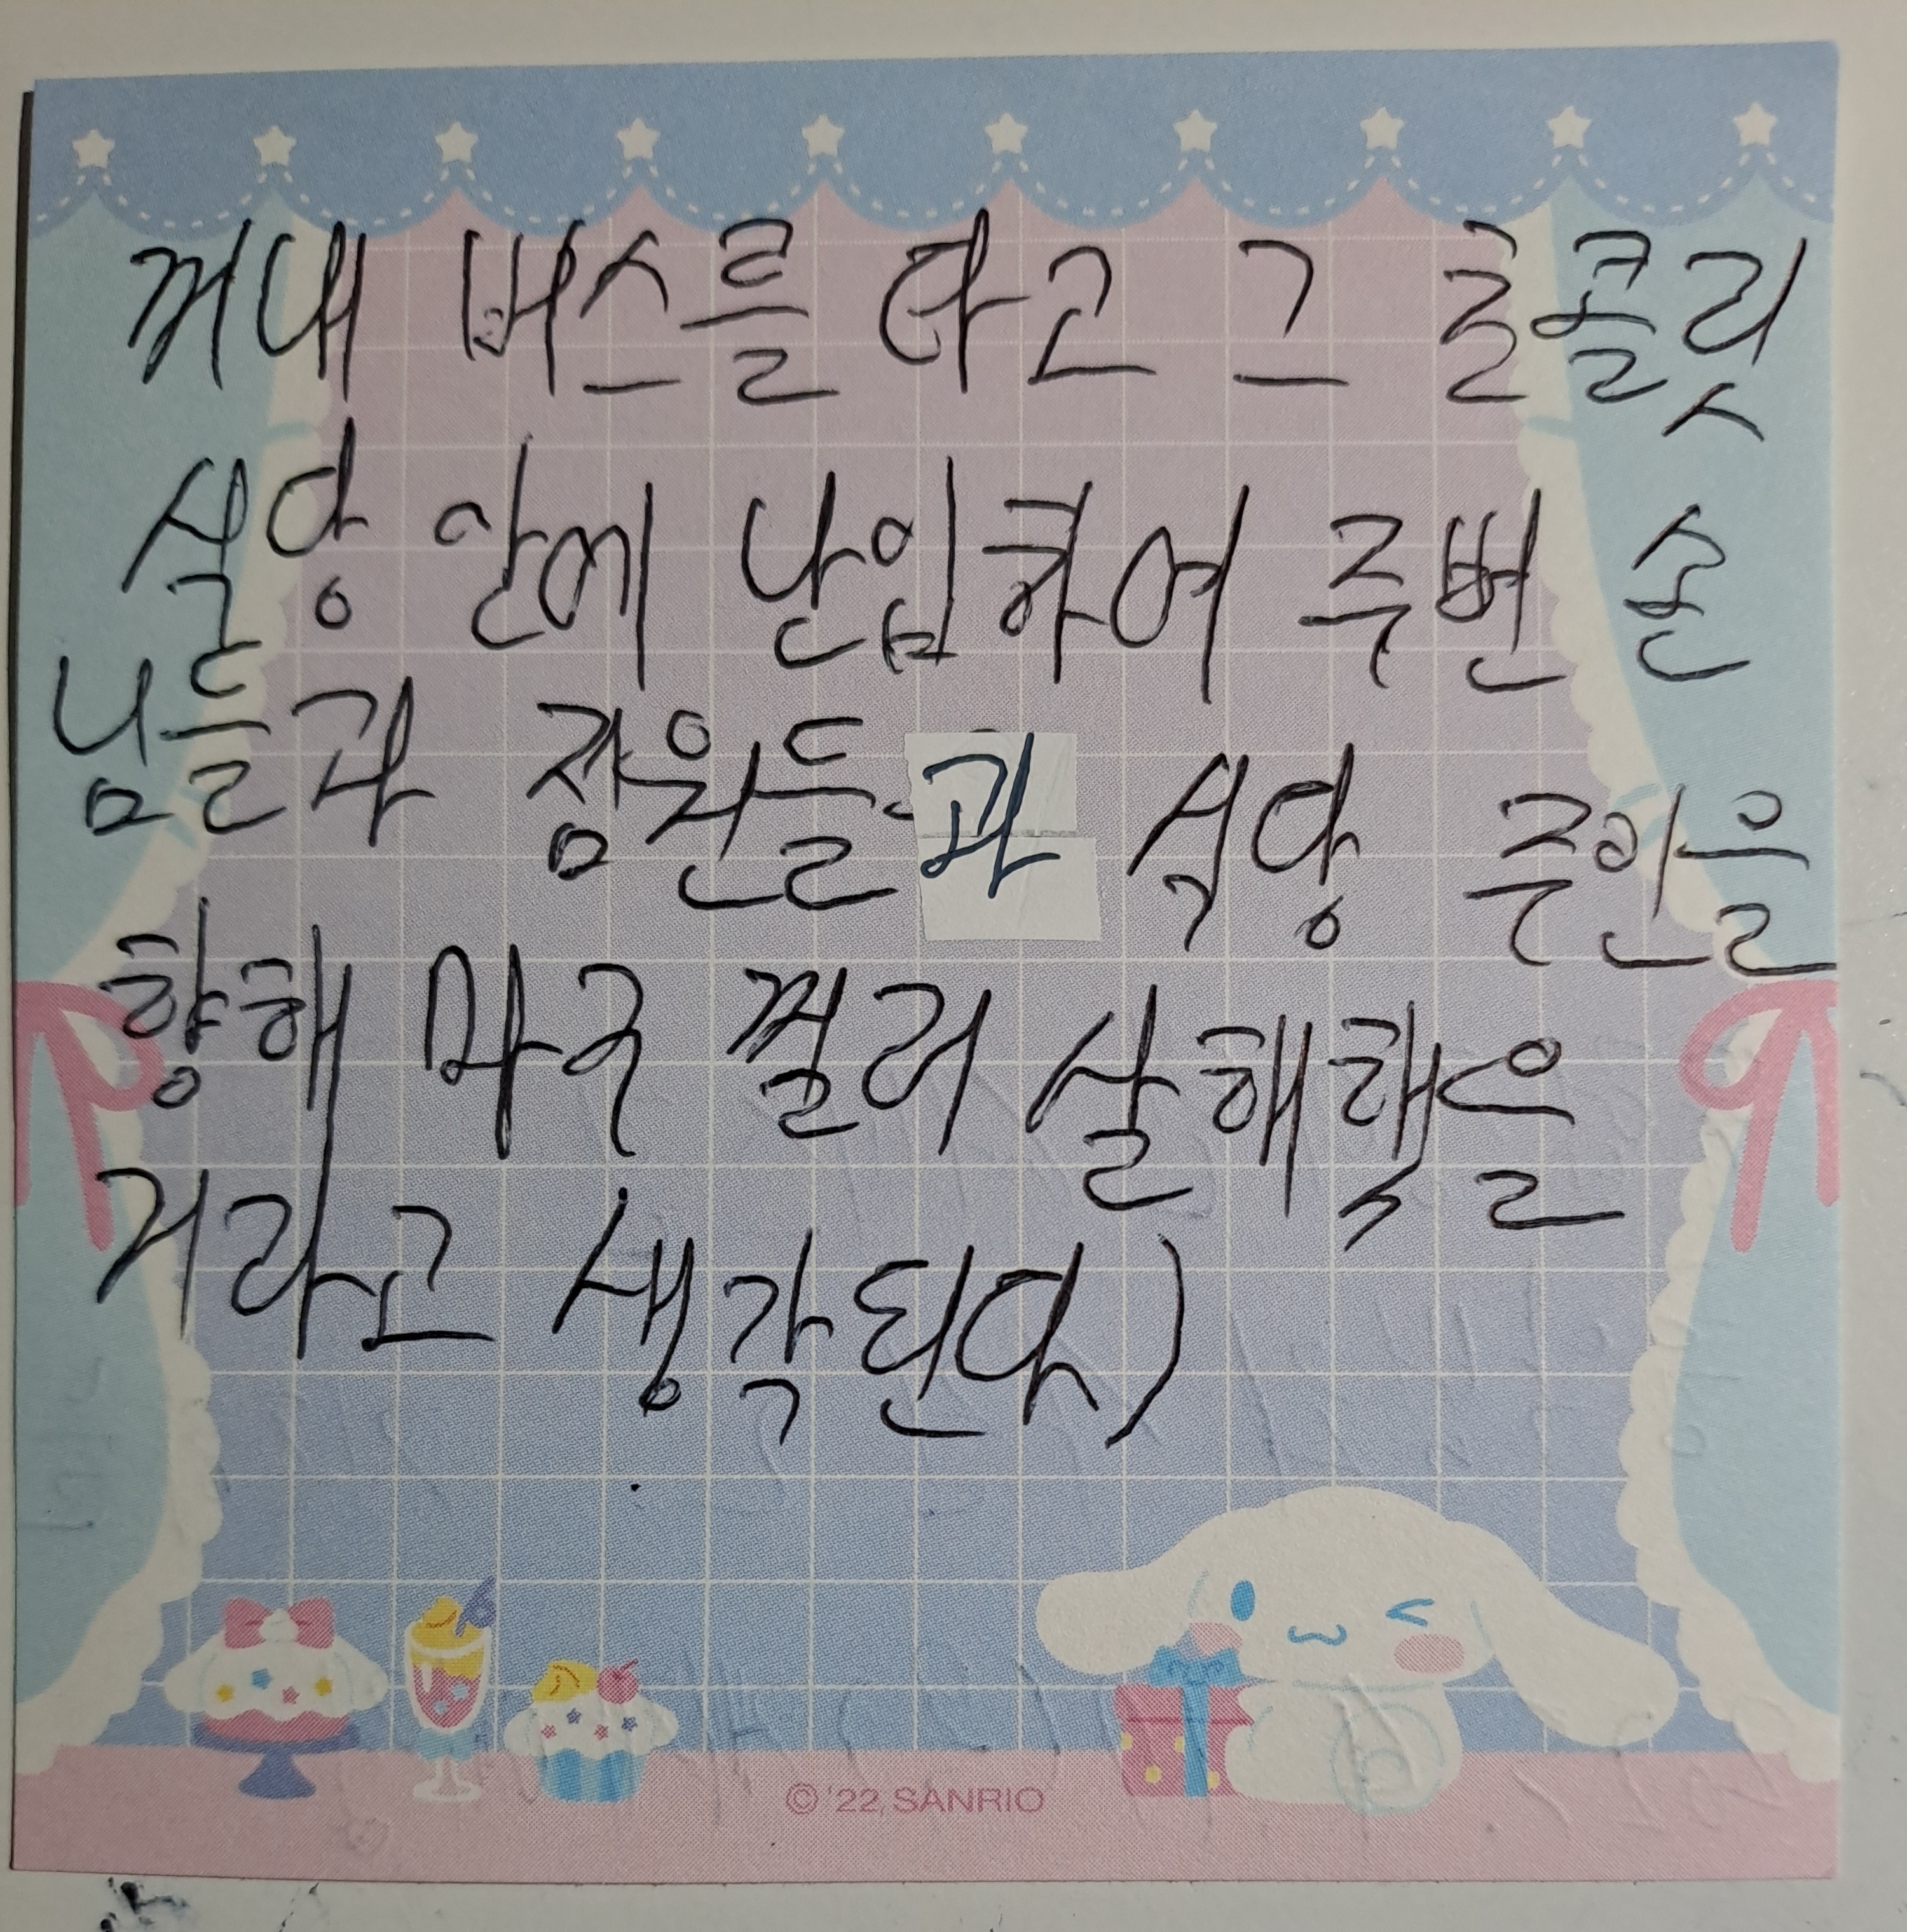 꺼내 버스를 타고 그 롤콜릿
식당 안에 난입하여 주변 손
님들과 점원들과 식당 주인을
향해 마구 찔러 살해했을
거라고 생각된다)
© '22, SANRIO